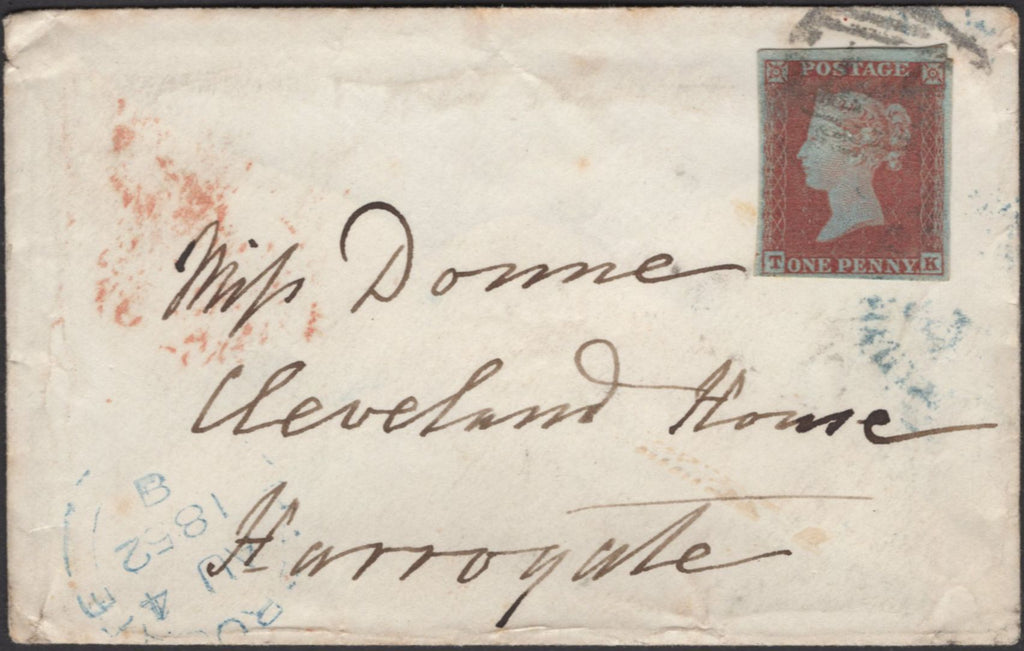 POSTAGE
T ONE PENNY K
Miss Donne
Cleveland House
Harrogate
B
1852
4